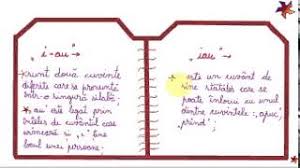 "i-au" →
* sunt două cuvinte
diferite care se pronunță
într-o singură silabă;
* "au" este legat prin
înțeles de cuvântul care
urmează și "i" ține
locul unei persoane.
"iau" →
* este un cuvânt de
sine stătător care se
poate înlocui cu unul
dintre cuvintele: "apuc",
"prind";